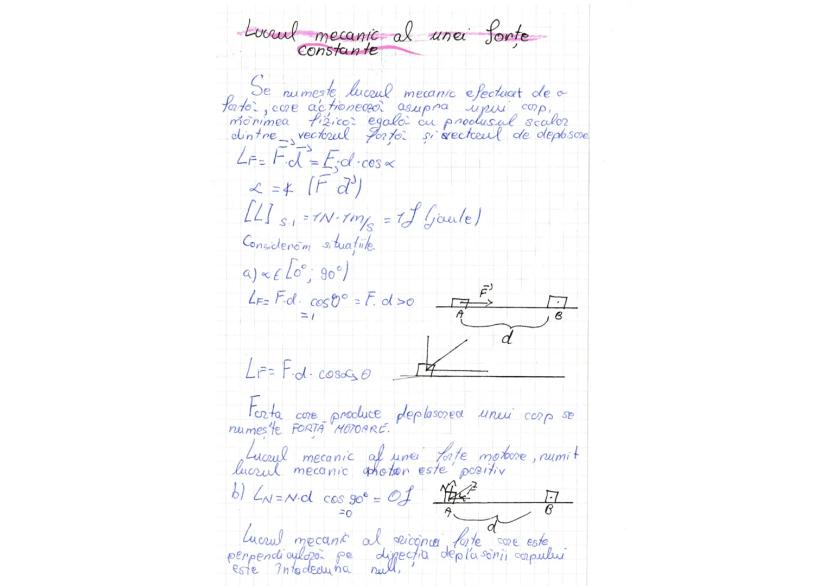 Lucrul mecanic al unei forțe
constante
Se numește lucrul mecanic efectuat de o
forță, care acționează asupra unui corp,
mărimea fizică egală cu produsul scalar
dintre vectorul forță și vectorul de deplasare
LF = F⃗·d⃗ = F·d·cos α
α = ∢ (F⃗ d⃗)
[L] SI = 1N·1m/s = 1J (joule)
Considerăm situațiile
a) α∈[0°; 90°)
LF = F·d· cos0° = F·d>0
=1
F⃗
A B
d
LF = F·d· cosα> 0
Forța care produce deplasarea unui corp se
numește FORȚĂ MOTOARE.
Lucrul mecanic al unei forțe motoare, numit
lucrul mecanic motor este pozitiv
b) LN = N·d cos 90° = 0J
=0
N F
A B
d
Lucrul mecanic al oricărei forțe care este
perpendiculară pe direcția deplasării corpului
este întodeauna nul.